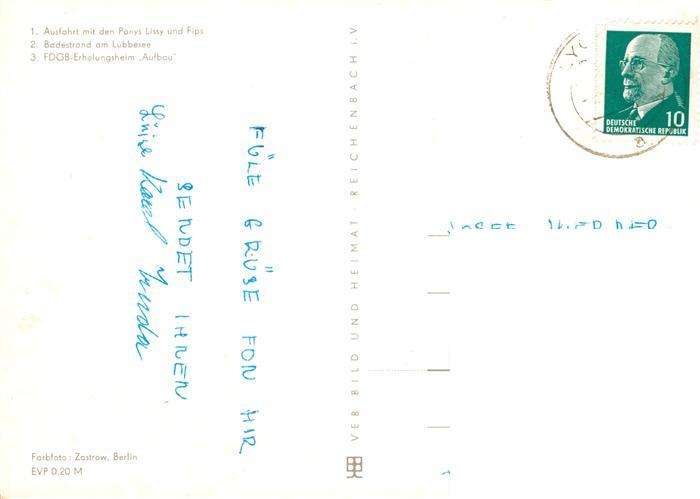 1. Ausfahrt mit den Ponys Lissy und Fips
2. Badestrand am Lübbesee
3. FDGB-Erholungsheim „Aufbau"
FÜLE GRÜSE FON HIR
SENDET IHNEN
Farbfoto: Zastrow, Berlin
EVP 0,20 M
VEB BILD UND HEIMAT · REICHENBACH i.V
DEUTSCHE
DEMOKRATISCHE REPUBLIK
10